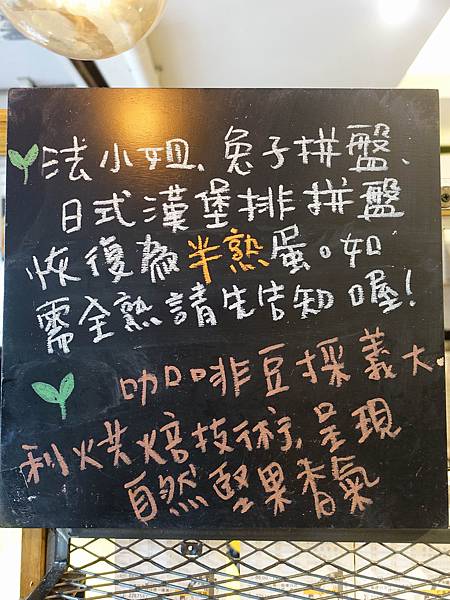 法小姐、兔子拼盤、
日式漢堡排拼盤
恢復為半熟蛋。如
需全熟請先告知喔!
咖啡豆採義大
利烘焙技術,呈現
自然堅果香氣